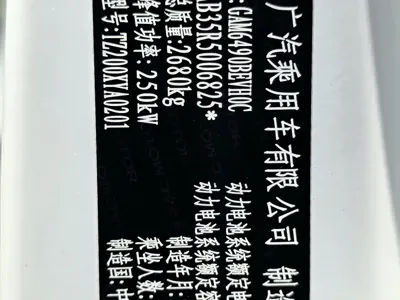 广汽乘用车有限公司 制造
:GAM6490BEVH0C 动力电池系统额定电
LB35R5006825* 动力电池系统额定容
总质量:2680kg 制造年月:
峰值功率:250kW 乘坐人数:
型号:TZ200XYA0201 制造国:中